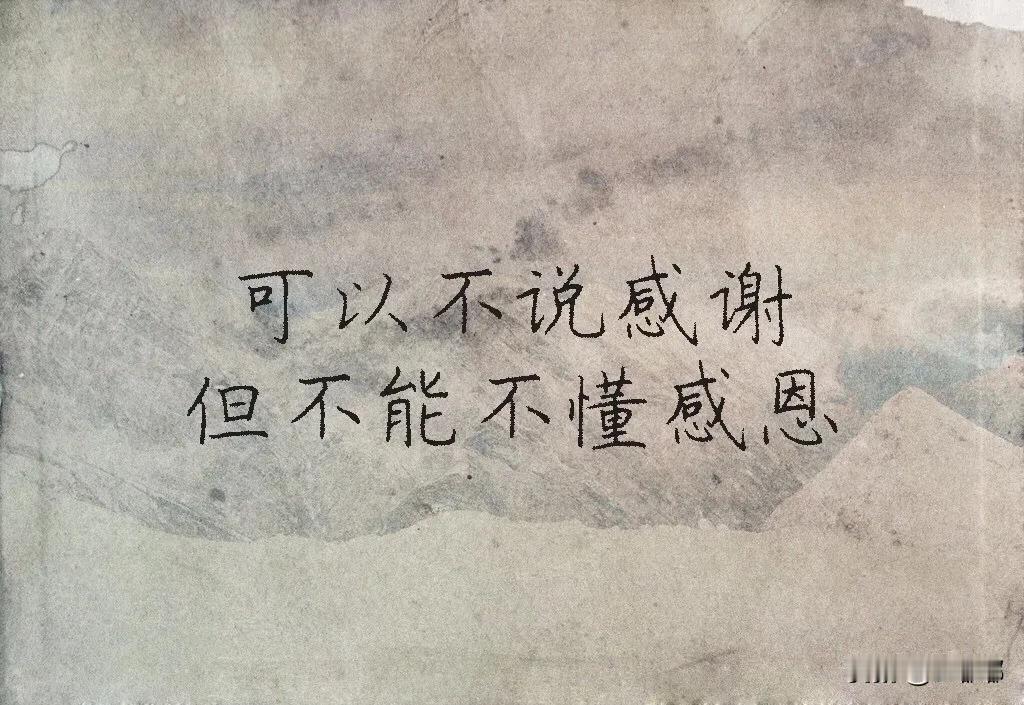 可以不说感谢
但不能不懂感恩